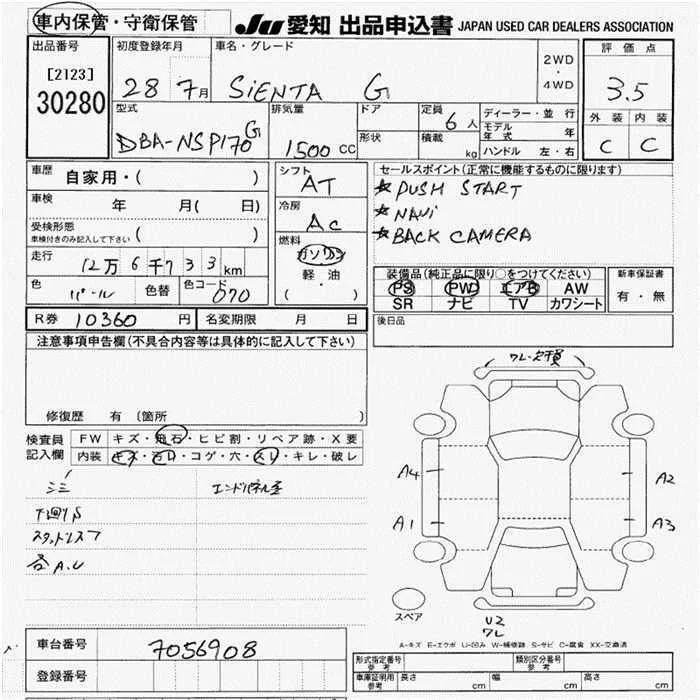 車内保管・守衛保管
JU 愛知 出品申込書 JAPAN USED CAR DEALERS ASSOCIATION
出品番号
[2123]
30280
初度登録年月
28 7月
車名・グレード
SiENTA G
2WD
・
4WD
評価点
3.5
外装 内装
C C
型式
DBA-NSP170G
排気量
1500 cc
ドア
形状
定員
6人
積載
kg
ディーラー・並行
モデル年式 年
ハンドル 左・右
車歴
自家用・( )
車検 年 月( 日)
受検形態
車検付きのみ記入して下さい ( )
走行
12万 6千7 3 3 km
色
パール
色替
色コード
070
シフト
AT
冷房
AC
燃料
ガソリン
軽・油
( )
セールスポイント(正常に機能するものに限ります)
★PUSH START
★NAVi
★BACK CAMERA
装備品(純正品に限り○をつけてください)
PS PWD エアB AW
SR ナビ TV カワシート
新車保証書
有・無
後日品
R券 10360 円 名変期限 月 日
注意事項申告欄(不具合内容等は具体的に記入して下さい)
修復歴 有 (箇所 )
検査員
記入欄
FW キズ・飛石・ヒビ割・リペア跡・X要
内装 キズ・汚れ・コゲ・穴・スレ・キレ・破レ
エンドパネル歪
下回りS
スタットレス
各A.U
A4
A1
A2
A3
スペア
U2
ワレ
A-キズ E-エクボ U-凹み W-補修跡 S-サビ C-腐食 XX-交換済
車台番号 7056908
登録番号
型式指定番号
参考
類別区分番号
参考
車庫証明用
参考
長さ cm 幅 cm 高さ cm